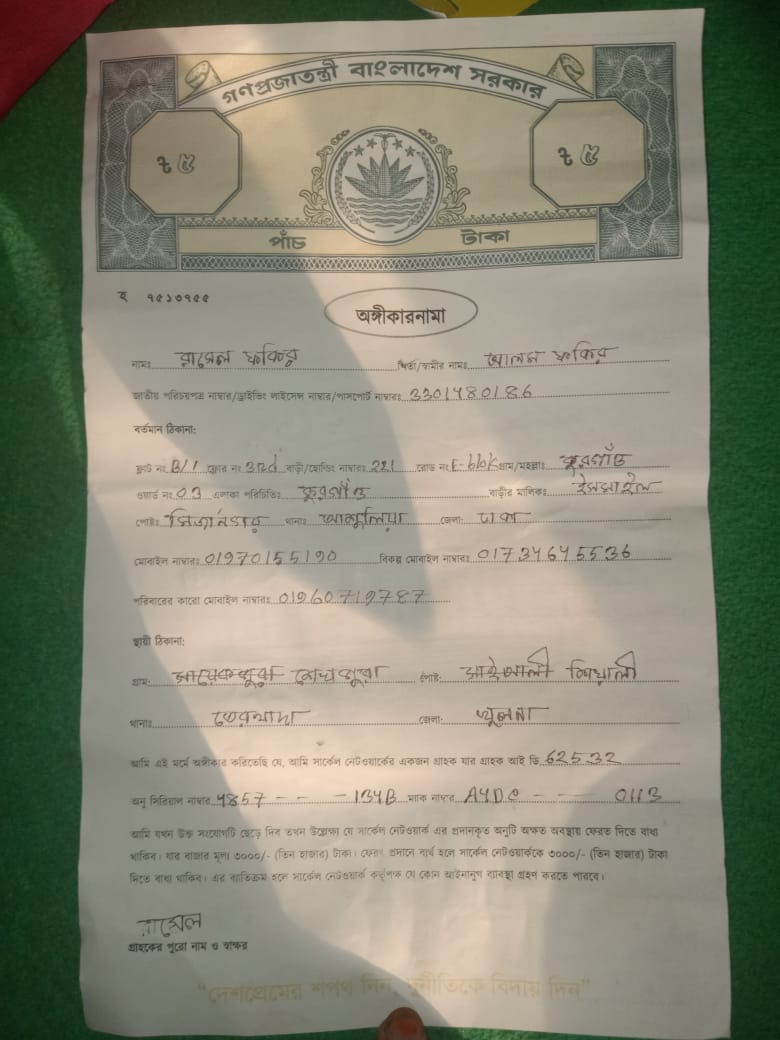 গণপ্রজাতন্ত্রী বাংলাদেশ সরকার
৳ ৫ ৳ ৫
পাঁচ টাকা
হ ৭৫১৩৭৫৫
অঙ্গীকারনামা
নামঃ রাসেল ফকির পিতা/স্বামীর নামঃ আলম ফকির
জাতীয় পরিচয়পত্র নাম্বার/ড্রাইভিং লাইসেন্স নাম্বার/পাসপোর্ট নাম্বারঃ 3301480186
বর্তমান ঠিকানা:
ফ্লাট নং B/1 ফ্লোর নং 3rd বাড়ী/হোল্ডিং নাম্বারঃ 221 রোড নং E-blok গ্রাম/মহল্লাঃ কুরগাঁও
ওয়ার্ড নং 03 এলাকা পরিচিতিঃ কুরগাঁও বাড়ীর মালিকঃ ইসমাইল
পোষ্টঃ মির্জানগর থানাঃ আশুলিয়া জেলা: ঢাকা
মোবাইল নাম্বারঃ 01970155190 বিকল্প মোবাইল নাম্বারঃ 01734645536
পরিবারের কারো মোবাইল নাম্বারঃ 01960719787
স্থায়ী ঠিকানা:
গ্রাম: শেখপুরা পোষ্ট: শিয়ালী
থানাঃ তেরখাদা জেলা: খুলনা
আমি এই মর্মে অঙ্গীকার করিতেছি যে, আমি সার্কেল নেটওয়ার্কের একজন গ্রাহক যার গ্রাহক আই ডি 62532
অনু সিরিয়াল নাম্বার 4857 - - - 134B ম্যাক নাম্বার A4DC - - 0113
আমি যখন উক্ত সংযোগটি ছেড়ে দিব তখন উল্লেক্ষ্য যে সার্কেল নেটওয়ার্ক এর প্রদানকৃত অনুটি অক্ষত অবস্থায় ফেরত দিতে বাধ্য
থাকিব। যার বাজার মূল্য ৩০০০/- (তিন হাজার) টাকা। ফেরৎ প্রদানে ব্যর্থ হলে সার্কেল নেটওয়ার্ককে ৩০০০/- (তিন হাজার) টাকা
দিতে বাধ্য থাকিব। এর ব্যতিক্রম হলে সার্কেল নেটওয়ার্ক কর্তৃপক্ষ যে কোন আইনানুগ ব্যবস্থা গ্রহণ করতে পারবে।
রাসেল
গ্রাহকের পুরো নাম ও স্বাক্ষর
“দেশপ্রেমের শপথ নিন, দুর্নীতিকে বিদায় দিন”